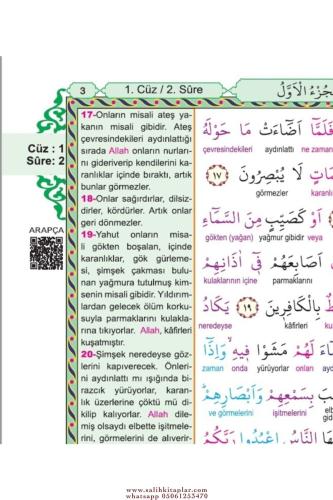 3
1. Cüz / 2. Sûre
الجُزْءُ الْاَوَّلُ
Cüz : 1
Sûre: 2
ARAPÇA
17-Onların misali ateş ya-
kanın misali gibidir. Ateş
çevresindekileri aydınlattığı
sırada Allah onların nurlarını
gideriverip kendilerini ka-
ranlıklar içinde bıraktı, artık
bunlar görmezler.
18-Onlar sağırdırlar, dilsiz-
dirler, kördürler. Artık onlar
geri dönmezler.
19-Yahut onların misa-
li gökten boşalan, içinde
karanlıklar, gök gürleme-
si, şimşek çakması bulu-
nan yağmura tutulmuş kim-
senin misali gibidir. Yıldırım-
lardan gelecek ölüm korku-
suyla parmaklarını kulakla-
rına tıkıyorlar. Allah, kâfirleri
kuşatmıştır.
20-Şimşek neredeyse göz-
lerini kapıverecek. Önleri-
ni aydınlattı mı ışığında bi-
razcık yürüyorlar, karan-
lık üzerlerine çöktü mü di-
kilip kalıyorlar. Allah dile-
miş olsaydı elbette işitmele-
rini, görmelerini de alıverir-
فَلَمَّا اَضَاءَتْ مَا حَوْلَهُ
çevresindekileri aydınlattı ne zaman
لَا يُبْصِرُونَ ﴿١٧﴾
görmezler
اَوْ كَصَيِّبٍ مِنَ السَّمَاءِ
gökten (yağan) yağmur gibidir veya
اَصَابِعَهُمْ فِى اٰذَانِهِمْ
kulaklarının içine parmaklarını
بِالْكَافِرِينَ ﴿١٩﴾ يَكَادُ
neredeyse kâfirleri
لَهُمْ مَشَوْا فِيهِ وَاِذَا
zaman onda yürüyorlar onları
بِسَمْعِهِمْ وَاَبْصَارِهِمْ
ve görmelerini işitmelerini
النَّاسُ اعْبُدُوا رَبَّكُمُ
www.salihkitaplar.com
whatsapp 05061253470